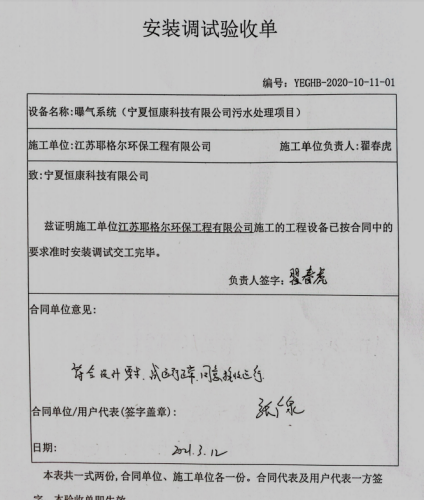 安装调试验收单
编号：YEGHB-2020-10-11-01
设备名称:曝气系统（宁夏恒康科技有限公司污水处理项目）
施工单位:江苏耶格尔环保工程有限公司 施工单位负责人:翟春虎
致:宁夏恒康科技有限公司
兹证明施工单位江苏耶格尔环保工程有限公司施工的工程设备已按合同中的
要求准时安装调试交工完毕。
负责人签字：翟春虎
合同单位意见：
符合设计要求，试运行正常，同意接收运行
合同单位/用户代表(签字盖章)：
日期： 2021.3.12
本表共一式两份,合同单位、施工单位各一份。合同代表及用户代表一方签
字，本验收单即生效